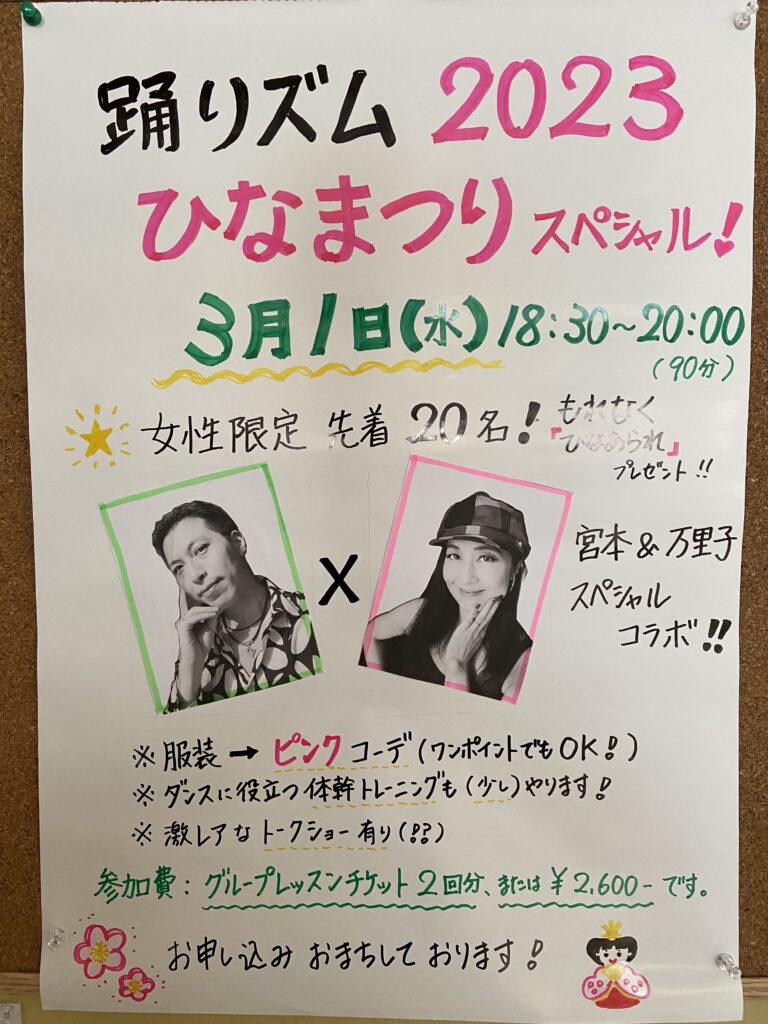 踊りズム 2023
ひなまつり スペシャル!
3月1日(水) 18:30~20:00
(90分)
女性限定 先着 20名!
もれなく
「ひなあられ」
プレゼント!!
X
宮本&万里子
スペシャル
コラボ!!
※ 服装 → ピンク コーデ (ワンポイントでもOK!)
※ ダンスに役立つ体幹トレーニングも(少し)やります!
※ 激レアなトークショー有り(!??)
参加費: グループレッスンチケット2回分、または¥2,600-です。
お申し込み おまちして おります!